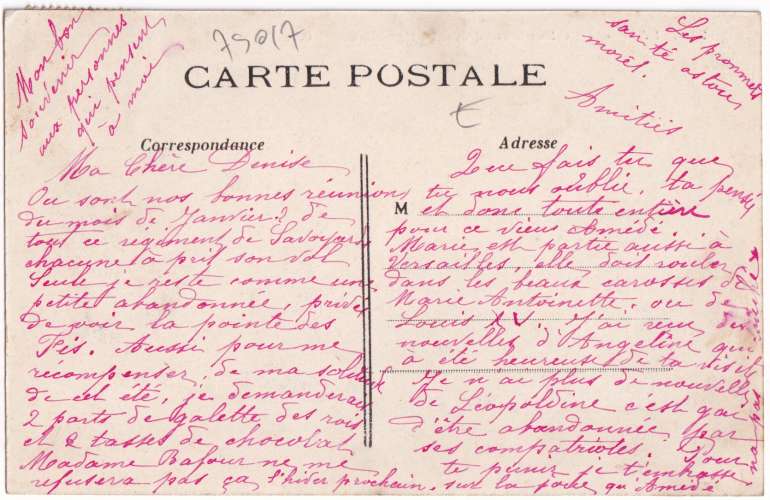 79017
CARTE POSTALE
Correspondance
Adresse
M
Mon bon
souvenir
aux personnes
qui pensent
à moi
Ma Chère Denise
Ou sont nos bonnes réunions
du mois de Janvier? de
tout ce regiment de Savoyards
chacune à pris son vol
Seule je reste comme une
petite abandonnée, privée
de voir la pointe des
Fis. Aussi pour me
recompenser, de ma solitude
de cet été, je demanderais
2 parts de galette des rois
et 2 tasses de chocolat
Madame Bafour ne me
refusera pas ça l'hiver prochain.
Que fais tu que
tu nous oublie, ta pensée
et donc toute entière
pour ce vieux Amédé.
Marie est partie aussi à
Versailles, elle doit rouler
dans les beaux carosses de
Marie Antoinette, ou de
Louis XV. J'ai reçu des
nouvelles d'Angeline qui
a été heureuse de ta visite
Je n'ai plus de nouvelles
de Léopoldine c'est gai
d'être abandonnée par
ses compatriotes. Pour
te punir je t'embrasse
sur la joue qu'Amédé
n'a pas
Les
santé
morel.
Amitiés